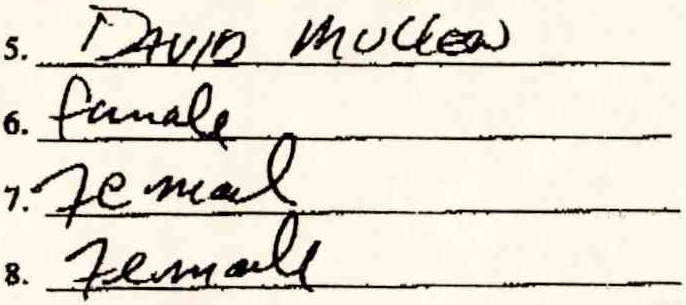 5. DAVID MULLEN
6. female
7. Femal
8. Female